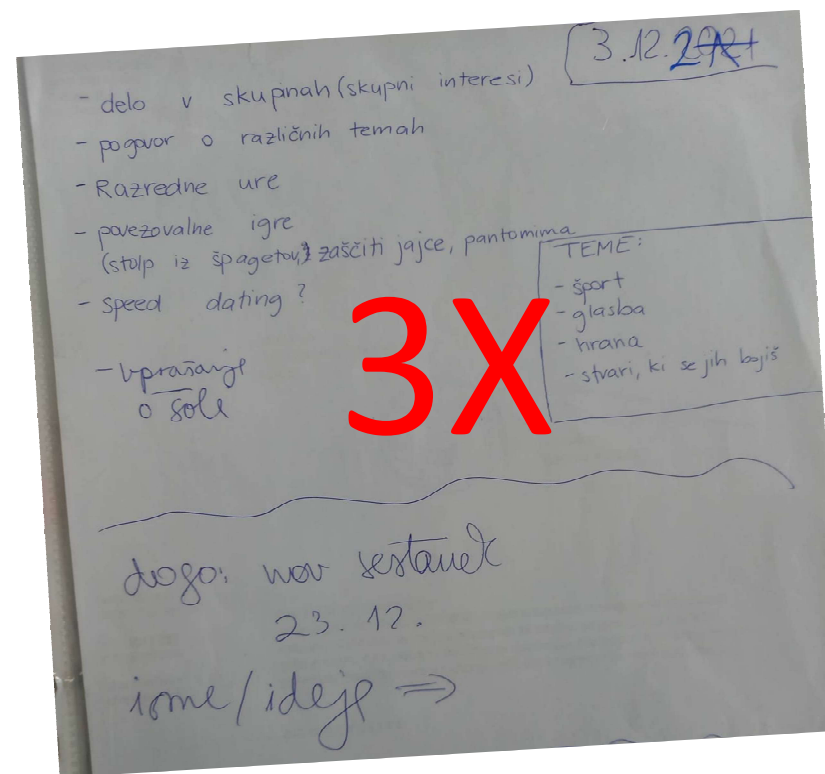 3.12.
- delo v skupnah (skupni interesi)
- pogovor o različnih temah
- Razredne ure
- povezovalne igre
(stolp iz špagetov, zaščiti jajce, pantomima
- speed dating?
- vprašanje
o šole
TEME:
- šport
- glasba
- hrana
- stvari, ki se jih bojiš
3X
nov sestanek
23.12.
/ ideje ⇒